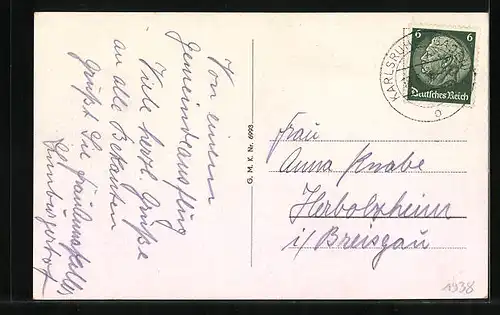 Von einem
Gemeindeausflug
Viele herzl. Grüße
an alle Bekannten
Grüßt Sie
G. M. K. Nr. 6993
KARLSRUHE
g
6 6
Deutsches Reich
Frau
Anna Knabe
Herbolzheim
i/ Breisgau
1938